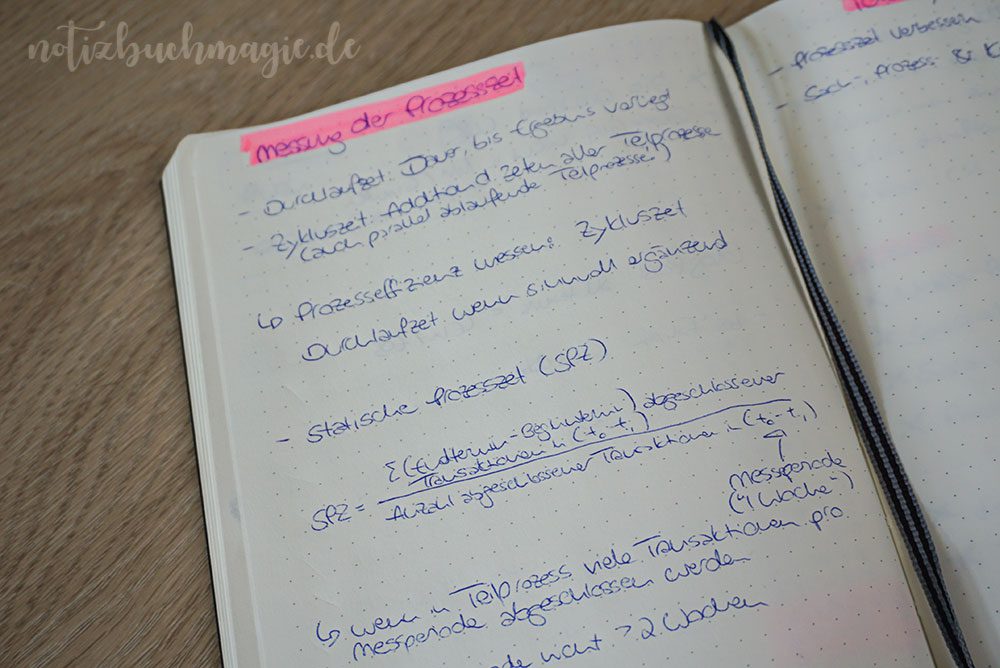 notizbuchmagie.de
Messung der Prozesszeit
- Durchlaufzeit: Dauer, bis Ergebnis vorliegt
- Zykluszeit: Addition d. Zeiten aller Teilprozesse
(auch parallel ablaufende Teilprozesse)
↳ Prozesseffizienz messen: Zykluszeit
Durchlaufzeit wenn sinnvoll ergänzend
- Statische Prozesszeit (SPZ)
Σ(Endtermin-Beginntermin) abgeschlossener
Transaktionen in (t₀-t₁)
SPZ =
Anzahl abgeschlossener Transaktionen in (t₀-t₁)
Messperiode
("1 Woche")
↳ wenn in Teilprozess viele Transaktionen pro
Messperiode abgeschlossen werden
nicht > 2 Wochen
- Prozesszeit verbessern
- Sach-, Prozess- &